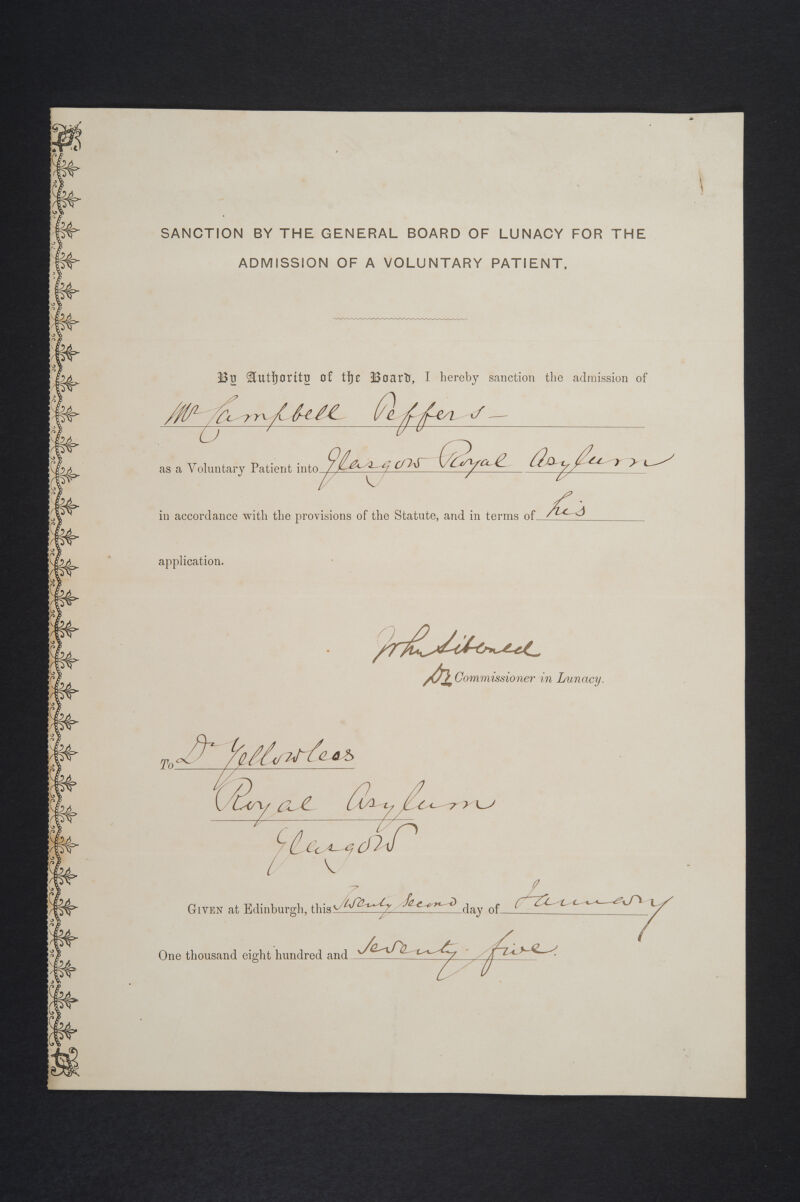 SANCTION BY THE GENERAL BOARD OF LUNACY FOR THE
ADMISSION OF A VOLUNTARY PATIENT.
By Authority of the Board, I hereby sanction the admission of
Mr Campbell Peffers —
as a Voluntary Patient into Glasgow Royal Asylum
in accordance with the provisions of the Statute, and in terms of his
application.
John Sibbald
Commissioner in Lunacy.
To Dr Yellowlees
Royal Asylum
Glasgow
GIVEN at Edinburgh, this Twenty Second day of January
One thousand eight hundred and Seventy-five.